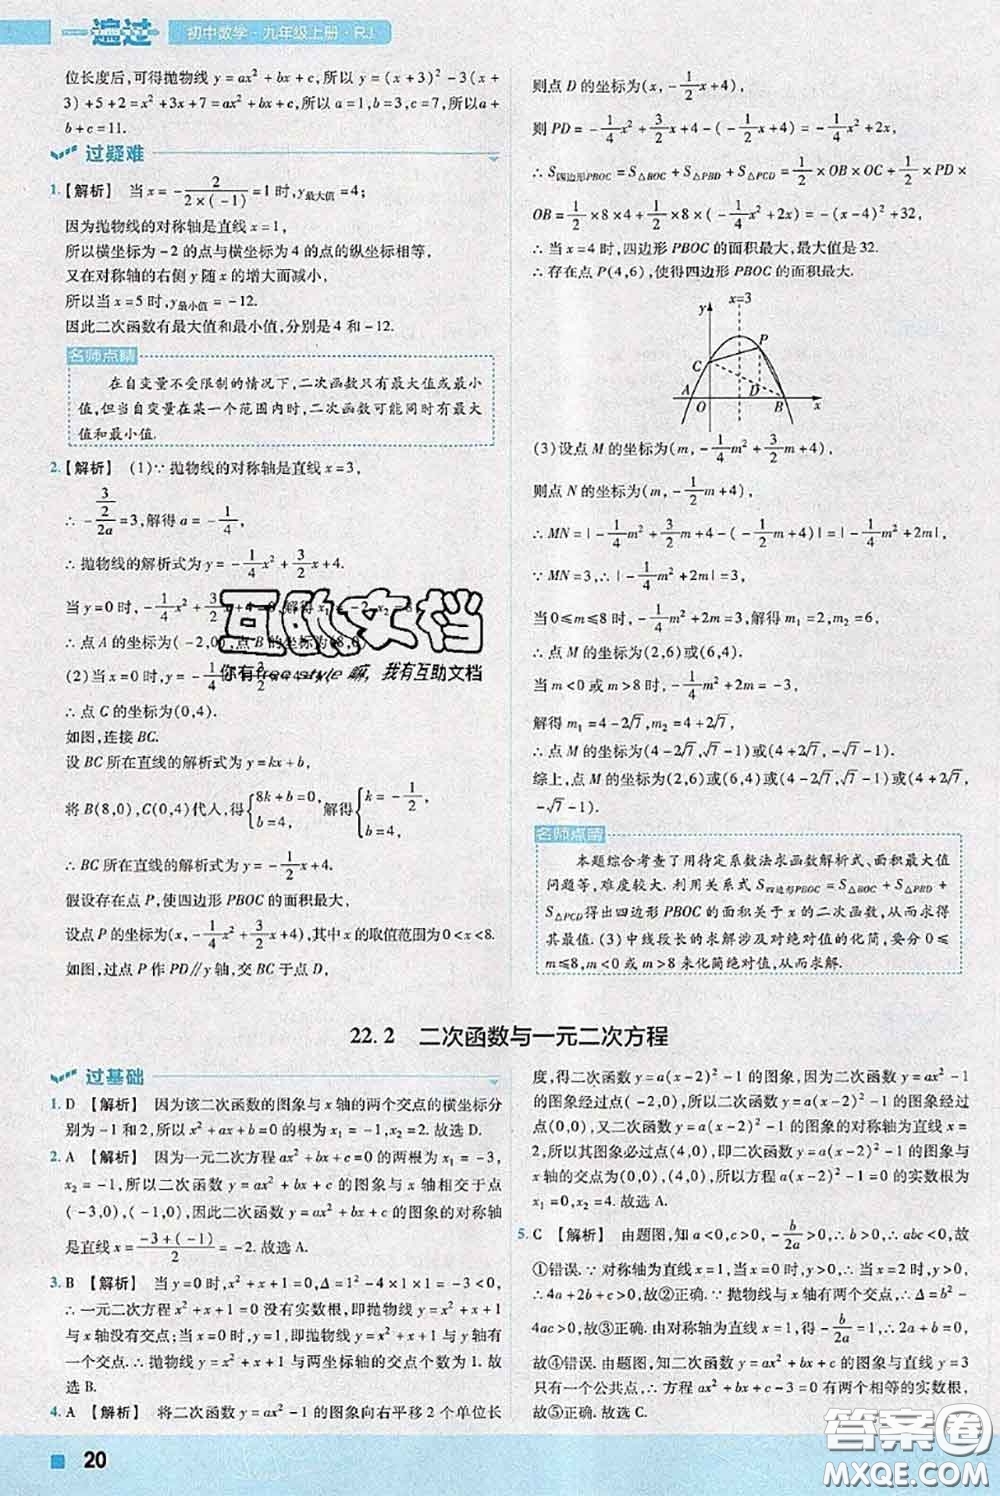 一遍过 初中数学·九年级上册·RJ
位长度后,可得抛物线 y=ax²+bx+c,所以 y=(x+3)²-3(x+
3)+5+2=x²+3x+7=ax²+bx+c,所以 a=1,b=3,c=7,所以a+
b+c=11.
过疑难
1.【解析】 当 x=-2/(2×(-1))=1 时,y最大值=4;
因为抛物线的对称轴是直线 x=1,
所以横坐标为-2 的点与横坐标为 4 的点的纵坐标相等,
又在对称轴的右侧 y 随 x 的增大而减小,
所以当 x=5 时,y最小值=-12.
因此二次函数有最大值和最小值,分别是 4 和-12.
名师点睛
在自变量不受限制的情况下,二次函数只有最大值或最小
值,但当自变量在某一个范围内时,二次函数可能同时有最大
值和最小值.
2.【解析】 (1)∵抛物线的对称轴是直线 x=3,
∴-(3/2)/(2a)=3,解得 a=-1/4,
∴抛物线的解析式为 y=-1/4x²+3/2x+4.
当 y=0 时,-1/4x²+3/2x+4=0,解得 x₁=-2,x₂=8,
∴点 A 的坐标为(-2,0),点 B 的坐标为(8,0).
(2)当 x=0 时,y=-1/4x²+3/2x+4=4,
∴点 C 的坐标为(0,4).
如图,连接 BC.
设 BC 所在直线的解析式为 y=kx+b,
将 B(8,0),C(0,4)代入,得{8k+b=0, b=4, 解得{k=-1/2, b=4,
∴BC 所在直线的解析式为 y=-1/2x+4.
假设存在点 P,使四边形 PBOC 的面积最大,
设点 P 的坐标为(x,-1/4x²+3/2x+4),其中 x 的取值范围为 0<x<8.
如图,过点 P 作 PD∥y 轴,交 BC 于点 D,
则点 D 的坐标为(x,-1/2x+4),
则 PD=-1/4x²+3/2x+4-(-1/2x+4)=-1/4x²+2x,
∴S四边形PBOC=S△BOC+S△PBD+S△PCD=1/2×OB×OC+1/2×PD×
OB=1/2×8×4+1/2×8×(-1/4x²+2x)=-(x-4)²+32,
∴当 x=4 时,四边形 PBOC 的面积最大,最大值是 32.
∴存在点 P(4,6),使得四边形 PBOC 的面积最大.
y x=3
C P
A O D B x
(3)设点 M 的坐标为(m,-1/4m²+3/2m+4),
则点 N 的坐标为(m,-1/2m+4),
∴MN=|-1/4m²+3/2m+4-(-1/2m+4)|=|-1/4m²+2m|.
∵MN=3,∴|-1/4m²+2m|=3,
当 0≤m≤8 时,-1/4m²+2m-3=0,解得 m₁=2,m₂=6,
∴点 M 的坐标为(2,6)或(6,4).
当 m<0 或 m>8 时,-1/4m²+2m+3=0,
解得 m₁=4-2√7,m₂=4+2√7,
∴点 M 的坐标为(4-2√7,√7-1)或(4+2√7,-√7-1).
综上,点 M 的坐标为(2,6)或(6,4)或(4-2√7,√7-1)或(4+2√7,
-√7-1).
名师点睛
本题综合考查了用待定系数法求函数解析式、面积最大值
问题等,难度较大. 利用关系式 S四边形PBOC=S△BOC+S△PBD+
S△PCD得出四边形 PBOC 的面积关于 x 的二次函数,从而求得
其最值. (3)中线段长的求解涉及对绝对值的化简,要分 0≤
m≤8,m<0 或 m>8 来化简绝对值,从而求解.
22.2 二次函数与一元二次方程
过基础
1. D 【解析】 因为该二次函数的图象与 x 轴的两个交点的横坐标分
别为-1 和 2,所以 x²+ax+b=0 的根为 x₁=-1,x₂=2. 故选 D.
2. A 【解析】 因为一元二次方程 ax²+bx+c=0 的两根为 x₁=-3,
x₂=-1,所以二次函数 y=ax²+bx+c 的图象与 x 轴相交于点
(-3,0),(-1,0),因此二次函数 y=ax²+bx+c 的图象的对称轴
是直线 x=(-3+(-1))/2=-2. 故选 A.
3. B 【解析】 当 y=0 时,x²+x+1=0,∵Δ=1²-4×1×1=-3<0,
∴一元二次方程 x²+x+1=0 没有实数根,即抛物线 y=x²+x+1
与 x 轴没有交点;当 x=0 时,y=1,即抛物线 y=x²+x+1 与 y 轴有
一个交点. ∴抛物线 y=x²+x+1 与两坐标轴的交点个数为 1. 故
选 B.
4. A 【解析】 将二次函数 y=ax²-1 的图象向右平移 2 个单位长
度,得二次函数 y=a(x-2)²-1 的图象,因为二次函数 y=ax²-1
的图象经过点(-2,0),所以二次函数 y=a(x-2)²-1 的图象经过
点(0,0),又二次函数 y=a(x-2)²-1 的图象的对称轴为直线 x=
2,所以其图象必过点(4,0),即二次函数 y=a(x-2)²-1 的图象与
x 轴的交点为(0,0),(4,0),所以方程 a(x-2)²-1=0 的实数根为
x₁=0,x₂=4. 故选 A.
5. C 【解析】 由题图,知 a<0,c>0,-b/2a>0,∴b>0,∴abc<0,故
①错误. ∵对称轴为直线 x=1,∴-b/2a=1,∴b=-2a,∴2a+b=0,
∴4a+2b+c>0,故②正确. ∵抛物线与 x 轴有两个交点,∴Δ=b²-
4ac>0,故③正确. 由对称轴为直线 x=1,得-b/2a=1,
故④错误. 由题图,知二次函数 y=ax²+bx+c 的图象与直线 y=3
只有一个公共点,∴方程 ax²+bx+c=3 有两个相等的实数根,
故⑤正确. 故选 C.
互助文档
你有free style 嘛, 我有互助文档
20
答案圈
MXQE.COM